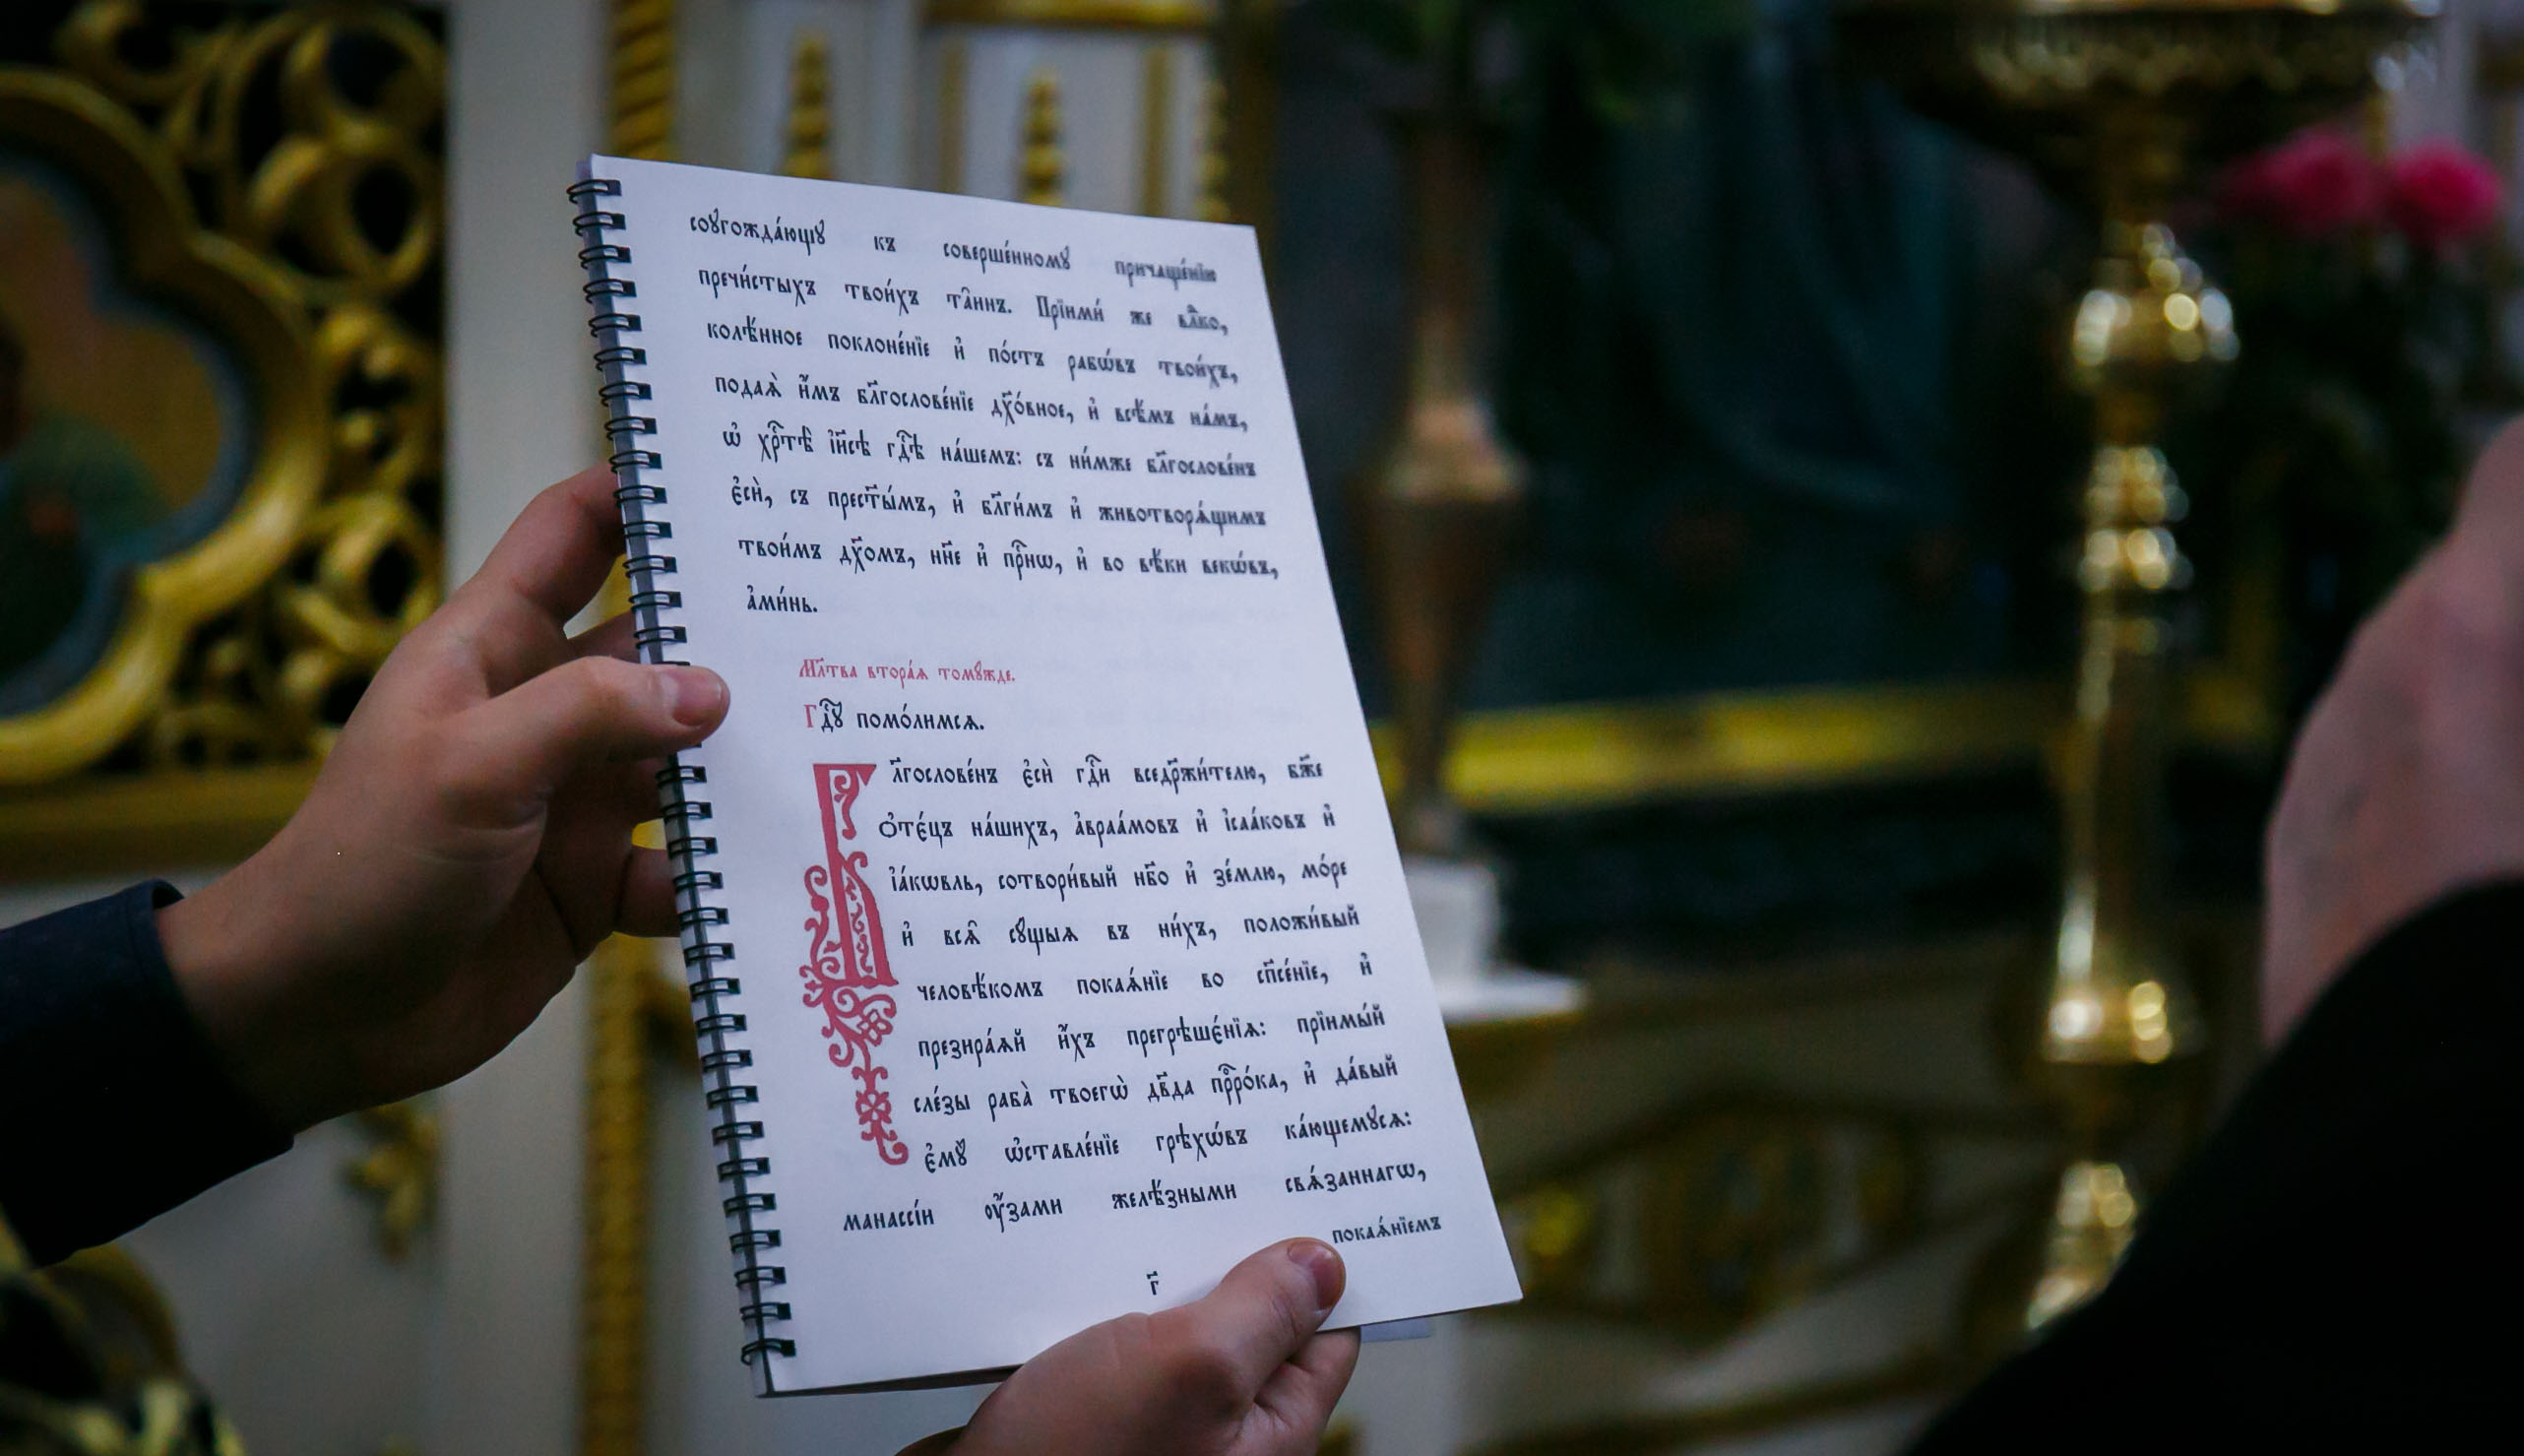 соꙋгожда́ющꙋ къ соверше́нномꙋ причаще́нїю
пречи́стыхъ твои́хъ та̑инъ. Прїими́ же вл҃ко,
колѣ́нное поклоне́нїе и҆ по́стъ рабѡ́въ твои́хъ,
подаѧ̀ и҆̀мъ бл҃гослове́нїе дх҃о́вное, и҆ всѣ́мъ на́мъ,
ѡ҆ хрⷭ҇тѣ̀ і҆и҃сѣ гдⷭ҇ѣ на́шемъ: съ ни́мже бл҃гослове́нъ
є҆сѝ, съ прест҃ы́мъ, и҆ бл҃ги́мъ и҆ животворѧ́щимъ
твои́мъ дх҃омъ, нн҃е и҆ прⷭ҇нѡ, и҆ во вѣ́ки векѡ́въ,
а҆ми́нь.
Мл҃тва втора́ѧ томꙋжде.
Гдⷭ҇ꙋ помо́лимсѧ.
Бл҃гослове́нъ є҆сѝ гдⷭ҇и вседр҃жи́телю, бж҃е
Ѻ҆те́цъ на́шихъ, а҆враа́мовъ и҆ і҆саа́ковъ и҆
і҆а́кѡвль, сотвори́вый нб҃о и҆ зе́млю, мо́ре
и҆ всѧ̑ сꙋщыѧ въ ни́хъ, положи́вый
человѣ́комъ покаѧ́нїе во сп҃се́нїе, и҆
презира́ѧй и҆́хъ прегрѣше́нїѧ: прїимы́й
сле́зы раба̀ твоегѡ̀ дв҃да прⷪ҇ро́ка, и҆ да́вый
є҆мꙋ̀ ѡ҆ставле́нїе грѣхѡ́въ ка́ющемꙋсѧ:
манассі́и оу҆́зами желѣ́зными свѧ́заннагѡ,
покаѧ́нїемъ
г҃